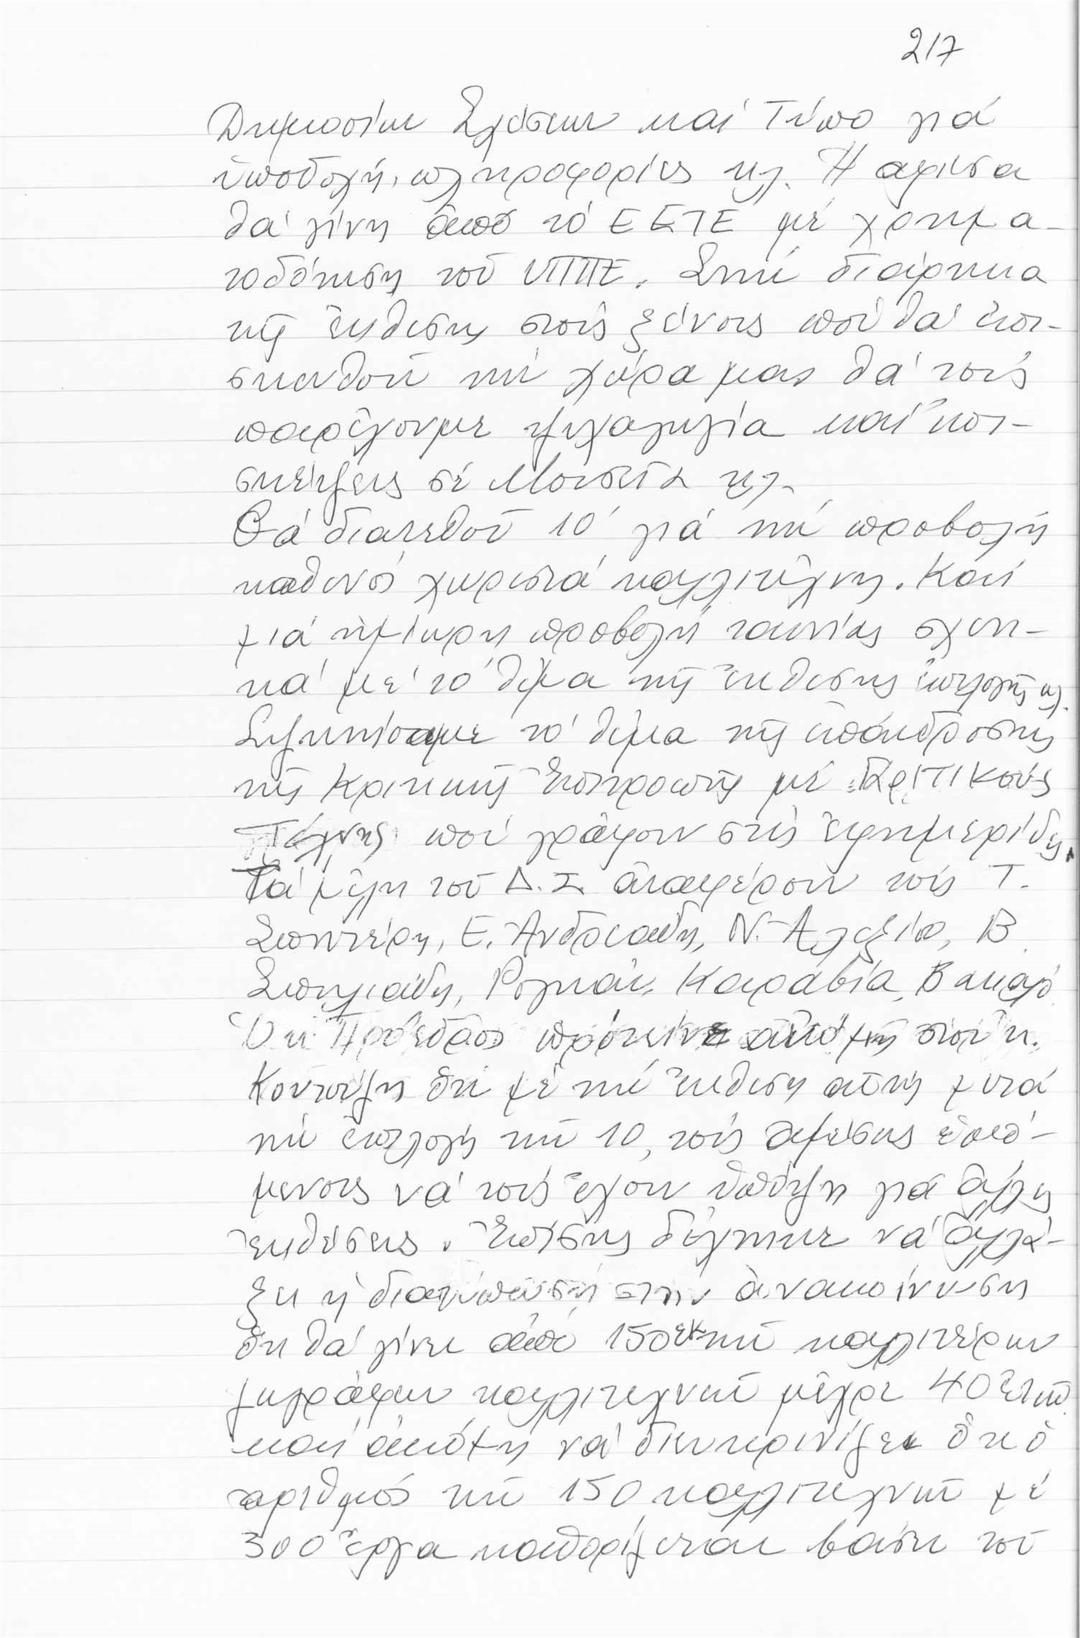 217
Δημοσίων Σχέσεων καί Τύπο γιά
ὑποδοχή, πληροφορίες κλ. Ἡ αφίσσα
θά γίνη ἀπό τό ΕΕΤΕ μέ χρημα-
τοδότηση τοῦ ΥΠΠΕ. Στή διάρκεια
τῆς ἔκθεσης στούς ξένους πού θά ἐπι-
σκευθοῦν τή χώρα μας θά τούς
παρέχουμε ψυχαγωγία καί ἐπι-
σκέψεις σέ Μουσεῖα κλ.
Θά διατεθοῦν 10' γιά τή προβολή
καθενός χωριστά καλλιτέχνη. Καί
μιά ἡμίωρη προβολή ταινίας σχετι-
κά μέ τό θέμα τῆς ἔκθεσης ἐπιλογῆς κλ.
Συζητήσαμε τό θέμα τῆς ἐπάνδρωσης
τῆς Κριτικῆς Ἐπιτροπῆς μέ Κριτικούς
Τέχνης πού γράφουν στίς ἐφημερίδες.
Τά μέλη τοῦ Δ.Σ. ἀναφέρουν τούς Τ.
Σπητέρη, Ε. Ἀνδρεάδη, Ν. Ἀλεξίου, Β.
Σπηλιάδη, Ρογκάν, Καραβία, Βακαλό
Ὁ κ Πρόεδρος πρότεινε ἀκόμη στόν κ.
ὅτι μέ τή ἔκθεση αὐτή μετά
τή ἐπιλογή τῶν 10, τούς ἀμέσως ἑπό-
μενους νά τούς ἔχουν ὑπόψη γιά ἄλλες
ἐκθέσεις. Ἐπίσης δέχτηκε νά ἀλλά-
ξει ἡ διατύπωση στήν ἀνακοίνωση
ὅτι θά γίνει ἀπό 150 ἐκ τῶν καλλιτέρων
ζωγράφων καλλιτεχνῶν μέχρι 40 ἐτῶν
καί ἀκόμη νά διευκρινίζει ὅτι ὁ
ἀριθμός τῶν 150 καλλιτεχνῶν μέ
300 ἔργα καθορίζεται βάσει τοῦ